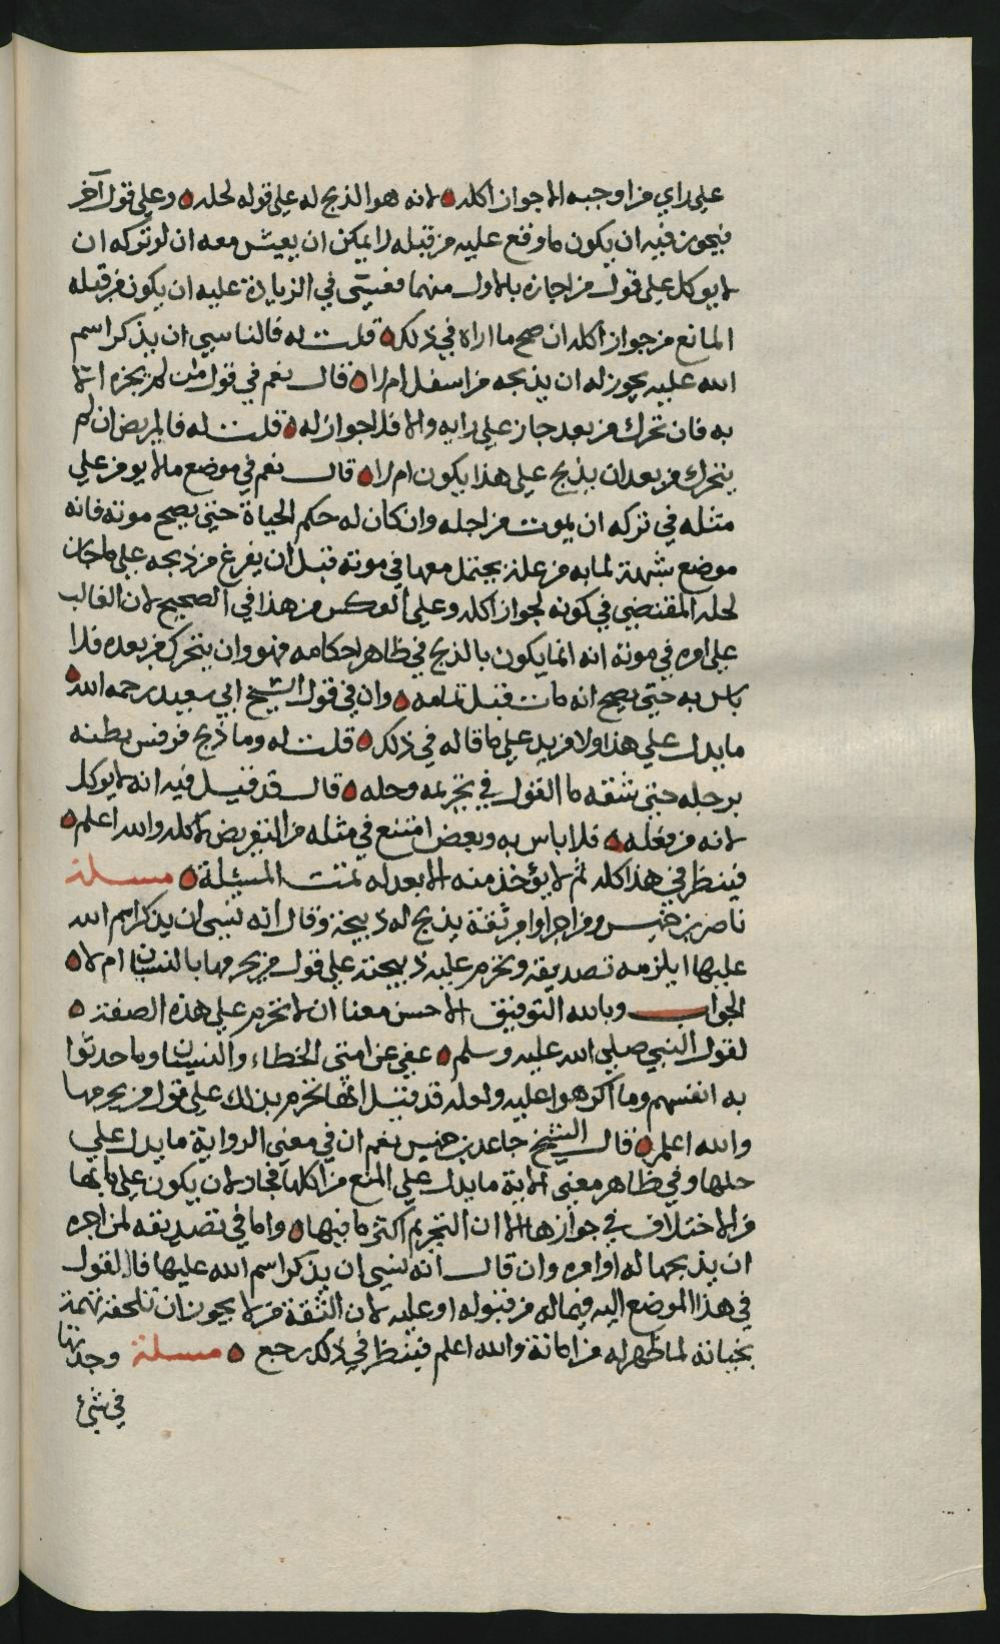 على راي من اوجبه الا جواز اكله لانه هو الذبح له على قوله لحله وعلى قول آخر
فيجوز فيه ان يكون ما وقع عليه من قبله لا يمكن ان يعيش معه ان لو تركه ان
لا يوكل على قول من اجازه بالاول منهما فعسى في الزيادة عليه ان يكون من قبله
المانع من جواز اكله ان صح ما اراه في ذلك قلت له فالناسي ان يذكر اسم
الله عليه يجوز له ان يذبحه من اسفل ام لا قال نعم في قول من لم يجزه الا
به فان تحرك من بعد جاز على رايه والا فلا جواز له قلت له فالمريض ان لم
يتحرك من بعد ان يذبح على هذا يكون ام لا قال نعم في موضع ما لا يومن على
مثله في تركه ان يموت من اجله وان كان له حكم الحياة حتى يصح موته فانه
موضع شبهة لما به من علة يحتمل معها في موته قبل ان يفرغ من ذبحه على ما جاز
لحله المقتضي في كونه لجواز اكله وعلى العكس من هذا في الصحيح لان الغالب
على امره في موته انه انما يكون بالذبح في ظاهر احكامه فهو وان يتحرك من بعده فلا
باس به حتى يصح انه مات قبل تمامه وان في قول الشيخ ابي سعيد رحمه الله
ما يدل على هذا ولا مزيد على ما قاله في ذلك قلت له وما ذبح فرفس بطنه
برجله حتى شقه ما القول في تحريمه وحله قال قد قيل فيه انه لا يوكل
لانه من فعله فلا باس به وبعض امتنع في مثله من التعريض لاكله والله اعلم
فينظر في هذا كله ثم لا يؤخذ منه الا بعدله تمت المسئلة مسئلة
ناصر بن خميس ومن اجر او امر ثقة يذبح له ذبيحة وقال انه نسى ان يذكر اسم الله
عليها ايلزمه تصديقه وتحرم عليه ذبيحته على قول من يحرمها بالنسيان ام لا
الجواب وبالله التوفيق الاحسن معنا ان لا تحرم على هذه الصفة
لقول النبي صلى الله عليه وسلم عفي عن امتي الخطاء والنسيان وما حدثوا
به انفسهم وما اكرهوا عليه ولعله قد قيل انها تحرم بذلك على قول من يحرمها
والله اعلم قال الشيخ جاعد بن خميس نعم ان في معنى الرواية ما يدل على
حلها وفي ظاهر معنى الاية ما يدل على المنع من اكلها فجاد لان يكون على ما بها
من الاختلاف في جوازها الا ان التحريم اكثر ما فيها واما في تصديقه لمن اجره
ان يذبحها له او امره وان قال انه نسى ان يذكر اسم الله عليها فالقول
في هذا الموضع اليه فيما له من قبوله او عليه لان الثقة من لا يجوز ان تلحقه تهمة
بخيانة لما ظهر له من امانة والله اعلم فينظر في ذلك رجع مسئلة وجدتها
في شئ